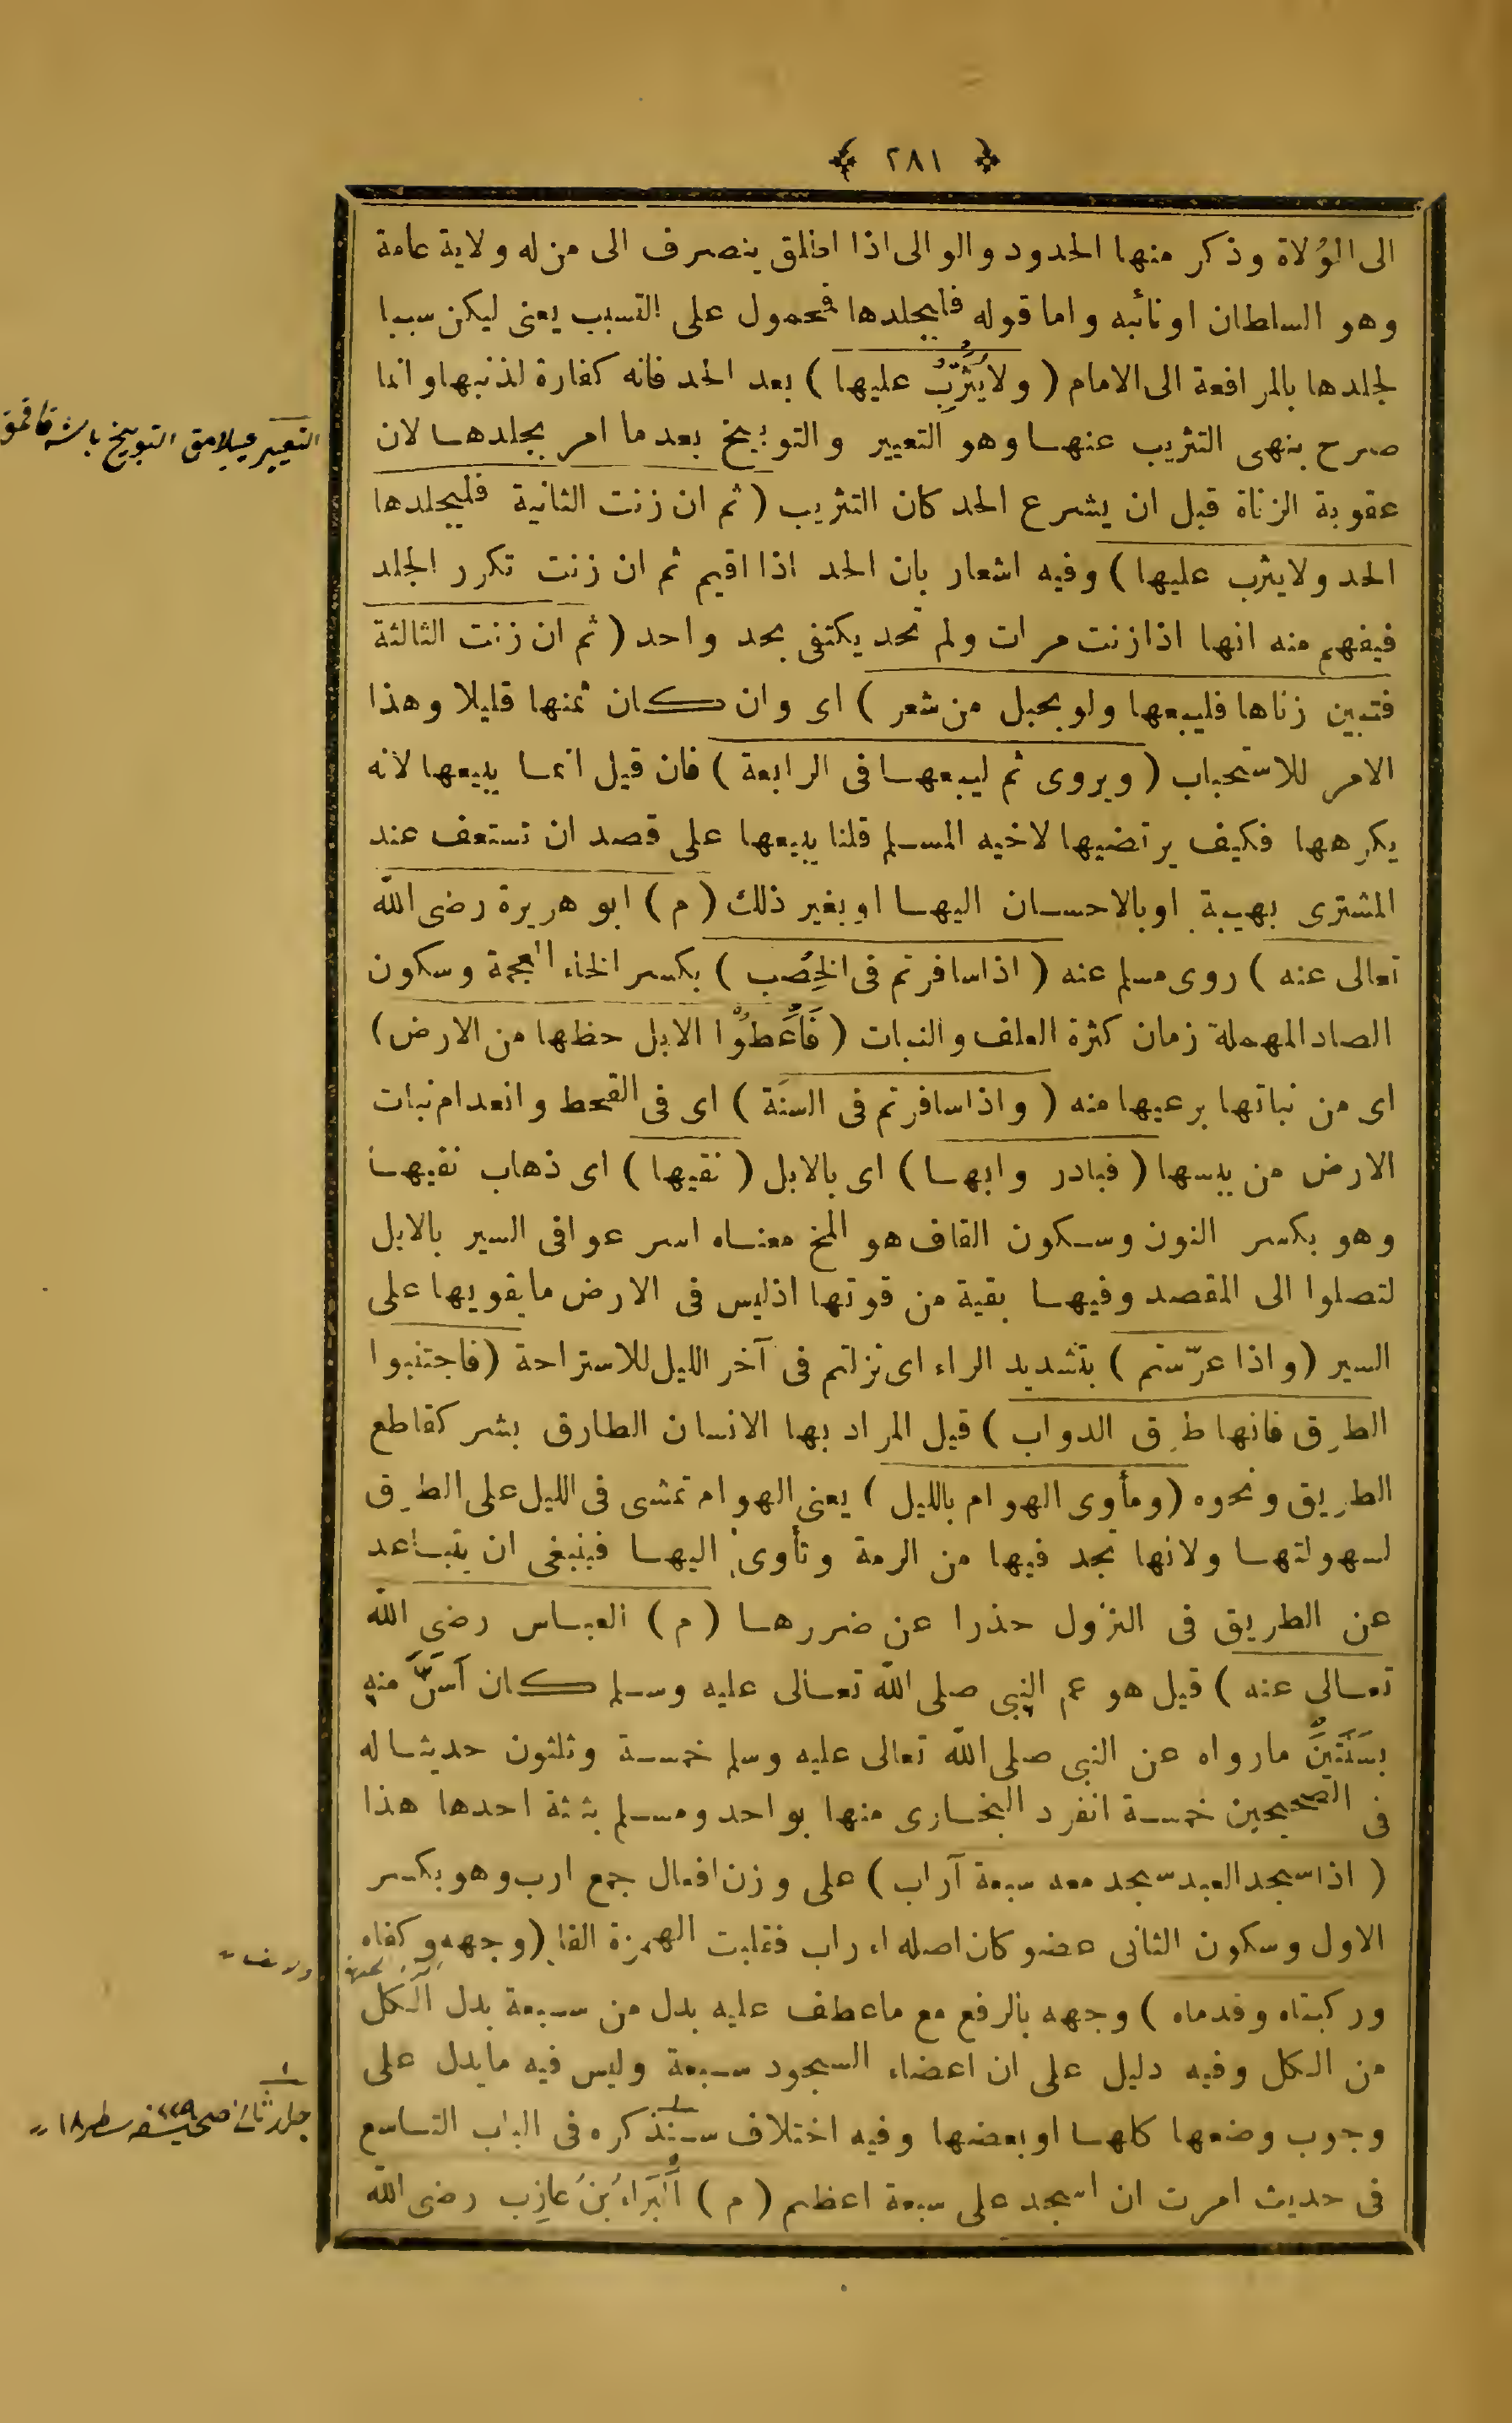 ﴿ ٢٨١ ﴾
الى الوُلاة وذكر منها الحدود والوالى اذا اطلق ينصرف الى من له ولاية عامة
وهو السلطان او نائبه واما قوله فليجلدها فمحمول على التسبب يعنى ليكن سببا
لجلدها بالمرافعة الى الامام ( ولايُثَرِّبُ عليها ) بعد الحد فانه كفارة لذنبها وانما
صرح بنهى التثريب عنها وهو التعيير والتوبيخ بعد ما امر بجلدها لان
عقوبة الزناة قبل ان يشرع الحد كان التثريب ( ثم ان زنت الثانية فليجلدها
الحد ولايثرب عليها ) وفيه اشعار بان الحد اذا اقيم ثم ان زنت تكرر الجلد
فيفهم منه انها اذا زنت مرات ولم تحد يكتفى بحد واحد ( ثم ان زنت الثالثة
فتبين زناها فليبعها ولو بحبل من شعر ) اى وان كان ثمنها قليلا وهذا
الامر للاستحباب ( ويروى ثم ليبعها فى الرابعة ) فان قيل انما يبيعها لانه
يكرهها فكيف يرتضيها لاخيه المسلم قلنا يبيعها على قصد ان تستعف عند
المشترى بهيبة اوبالاحسان اليها او بغير ذلك ( م ) ابو هريرة رضى الله
تعالى عنه ) روى مسلم عنه ( اذا سافرتم فى الخِصْب ) بكسر الخاء المعجمة وسكون
الصاد المهملة زمان كثرة العلف والنبات ( فَاَعْطُوْا الابل حظها من الارض )
اى من نباتها برعيها منه ( واذا سافرتم فى السنَة ) اى فى القحط وانعدام نبات
الارض من يبسها ( فبادروا بها ) اى بالابل ( نقيها ) اى ذهاب نقيها
وهو بكسر النون وسكون القاف هو المخ معناه اسرعوا فى السير بالابل
لتصلوا الى المقصد وفيها بقية من قوتها اذليس فى الارض مايقويها على
السير ( واذا عرّستم ) بتشديد الراء اى نزلتم فى آخر الليل للاستراحة ( فاجتنبوا
الطرق فانها طرق الدواب ) قيل المراد بها الانسان الطارق بشر كقاطع
الطريق ونحوه ( ومأوى الهوام بالليل ) يعنى الهوام تمشى فى الليل على الطرق
لسهولتها ولانها تجد فيها من الرمة وتأوى اليها فينبغى ان يتباعد
عن الطريق فى النزول حذرا عن ضررها ( م ) العباس رضى الله
تعالى عنه ) قيل هو عم النبى صلى الله تعالى عليه وسلم كان اَسَنَّ منه
بسَنَتَيْنِ مارواه عن النبى صلى الله تعالى عليه وسلم خمسة وثلثون حديثا له
فى الصحيحين خمسة انفرد البخارى منها بواحد ومسلم بثلثة احدها هذا
( اذا سجد العبد سجد معه سبعة آراب ) على وزن افعال جمع ارب وهو بكسر
الاول وسكون الثانى عضو كان اصله اءراب فقلبت الهمزة الفا ( وجهه وكفاه
وركبتاه وقدماه ) وجهه بالرفع مع ماعطف عليه بدل من سبعة بدل الكل
من الكل وفيه دليل على ان اعضاء السجود سبعة وليس فيه مايدل على
وجوب وضعها كلها او بعضها وفيه اختلاف سنذكره فى الباب التاسع
فى حديث امرت ان اسجد على سبعة اعظم ( م ) اَلْبَرَاءُ بْنُ عَازِب رضى الله
التعيير عيبلامق التوبيخ باشه قاقمق
جلد ثانى صحيفه ٢٢٩ سطر ١٨